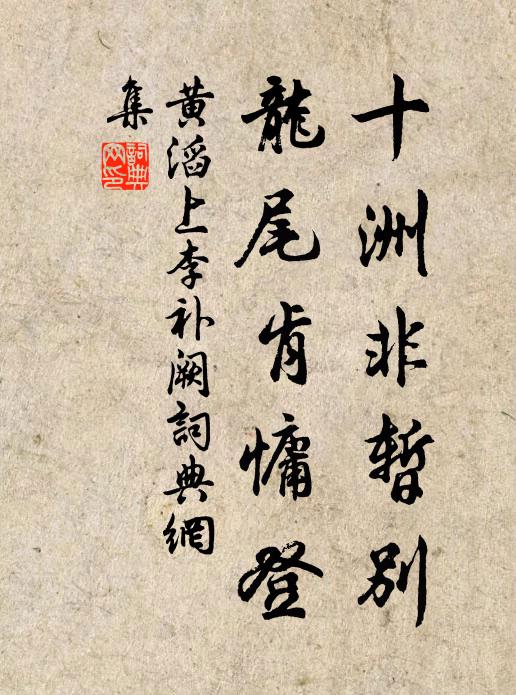 十洲非暫別
龍尾肯慵登
黄滔上李补阙詞典網
集
詞典網印